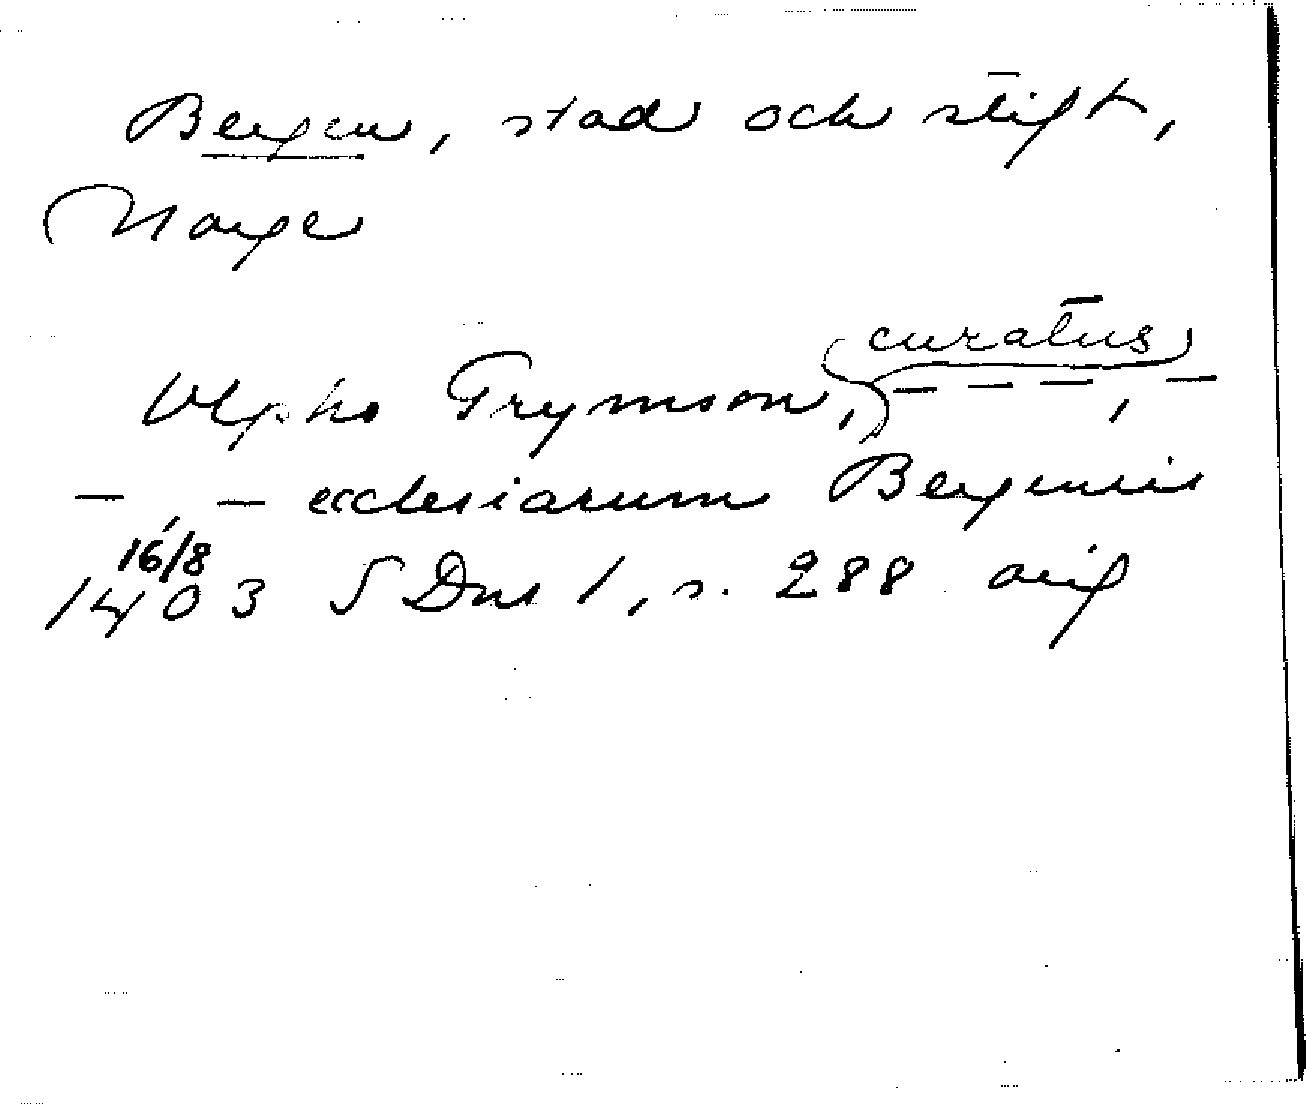 Bergen, stad och stift,
Norge
curatus
Olpho Trymson, – – – , –
– , – ecclesiarum Bergensis
16/8
1403 SDns 1, s. 288 orig